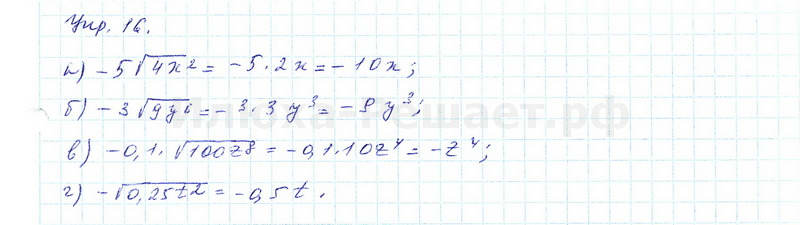 Упр. 16.
а) -5√4x² = -5·2x = -10x;
б) -3√9y⁶ = -3·3y³ = -9y³;
в) -0,1·√100z⁸ = -0,1·10z⁴ = -z⁴;
г) -√0,25t² = -0,5t.